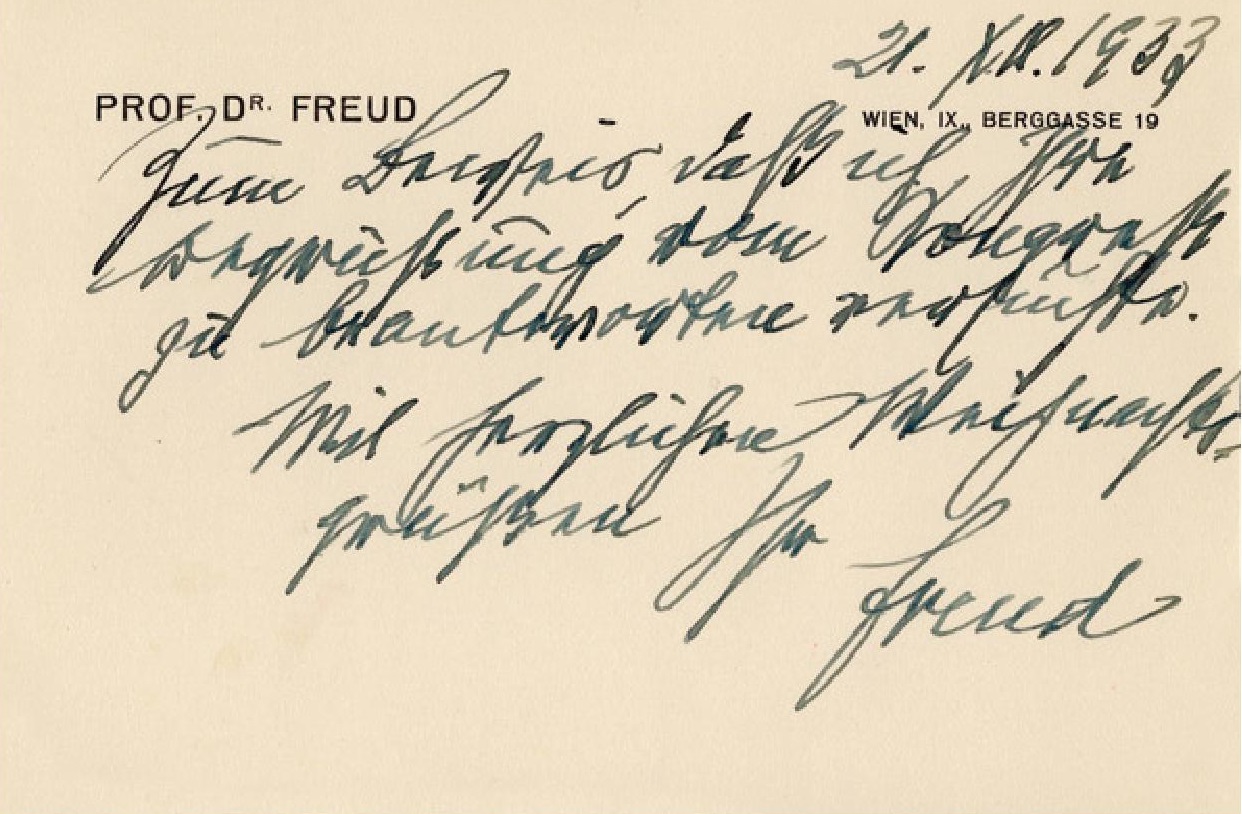 21. XII. 1933
PROF. DR. FREUD
WIEN, IX., BERGGASSE 19
Zum Beweis, daß ich Ihre
Begrüßung vom Kongreß
zu beantworten versuchte.
Mit herzlichen Weihnachts-
grüßen Ihr
Freud